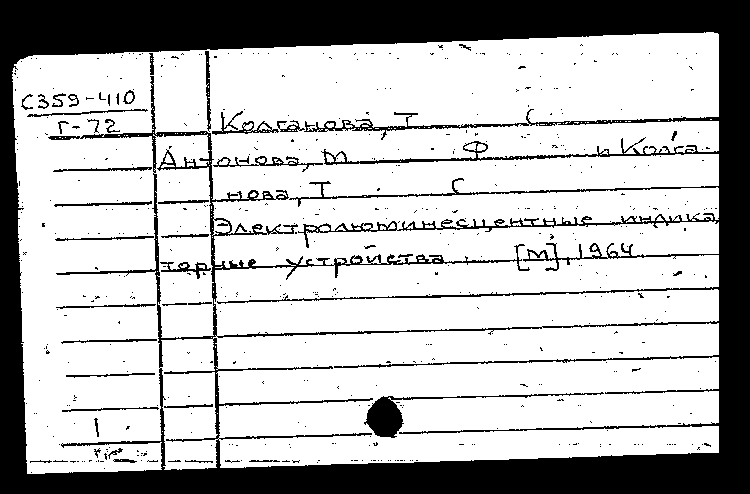 С359-410
Г-72
Колганова, Т С
Антонова, М Ф и Колга-
нова, Т С
Электролюминесцентные индика
торные устройства. [М], 1964
1